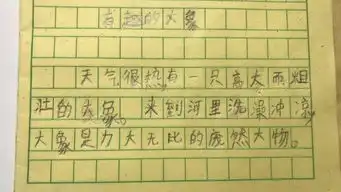 有趣的大象
天气很热有一只高大而粗
壮的大象。来到河里洗澡冲凉。
大象是力大无比的庞然大物。